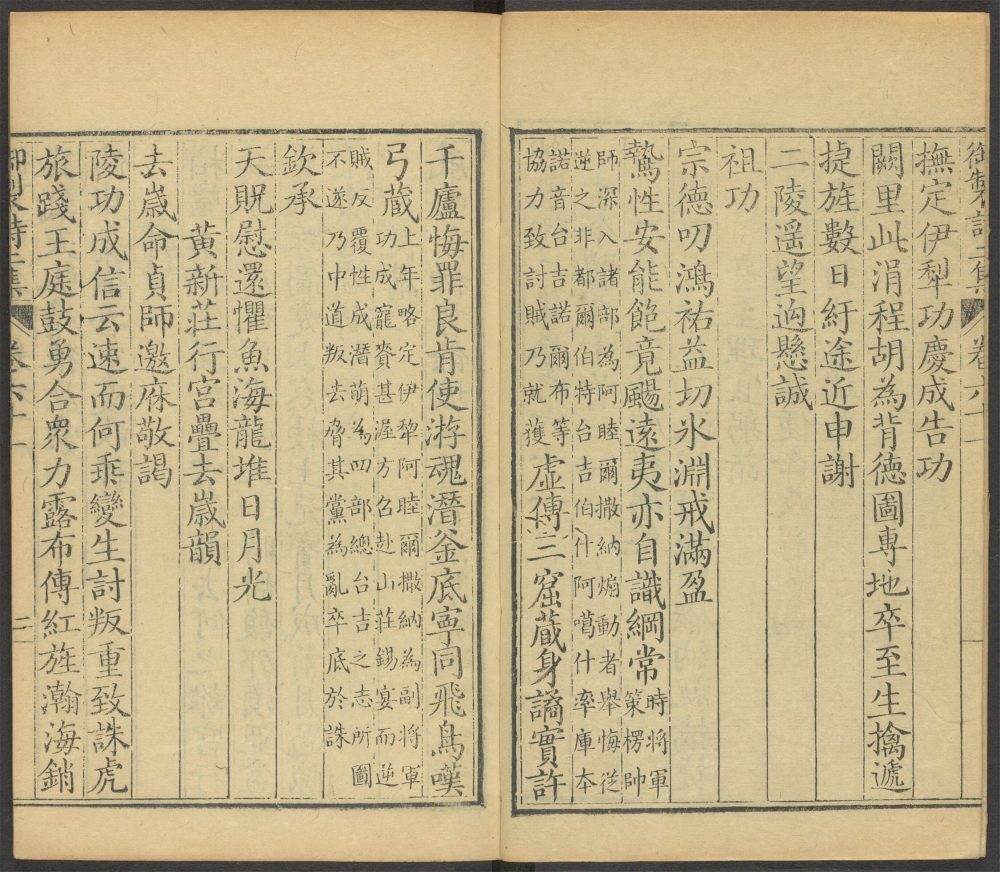 御製詩二集 卷六十一
撫定伊犁功慶成告功
闕里此涓程胡為背德圖專地卒至生擒遞
捷旌數日紆途近申謝
二陵遥望迥懸誠
祖功
宗德叨鴻祐益切氷淵戒滿盈
鷙性安能飽竟颺遠夷亦自識綱常時將軍策楞帥
師深入諸部為阿睦爾撒納煽動者舉悔從
逆之非都爾伯特台吉伯什阿噶什率庫本
諾音台吉諾爾布等
協力致討賊乃就獲虚傳三窟蔵身譎實許
千廬悔罪良肯使游魂潛釜底寜同飛鳥嘆
弓蔵上年略定伊犂阿睦爾撒納為副將軍
功成寵賚甚渥方召赴山荘錫宴而逆
賊反覆性成潛萌為四部總台吉之志所圖
不遂乃中道叛去脅其黨為亂卒底於誅
欽承
天貺慰還懼魚海龍堆日月光
黄新荘行宫疊去嵗韻
去嵗命貞師邀庥敬謁
陵功成信云速而何乖變生討叛重致誅虎
旅踐王庭鼓勇合衆力露布傳紅旌瀚海銷
御製詩二集 卷六十一 二